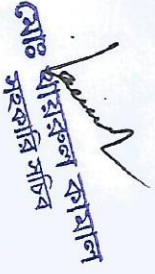 মোঃ খায়রুল কামাল
সহকারি সচিব